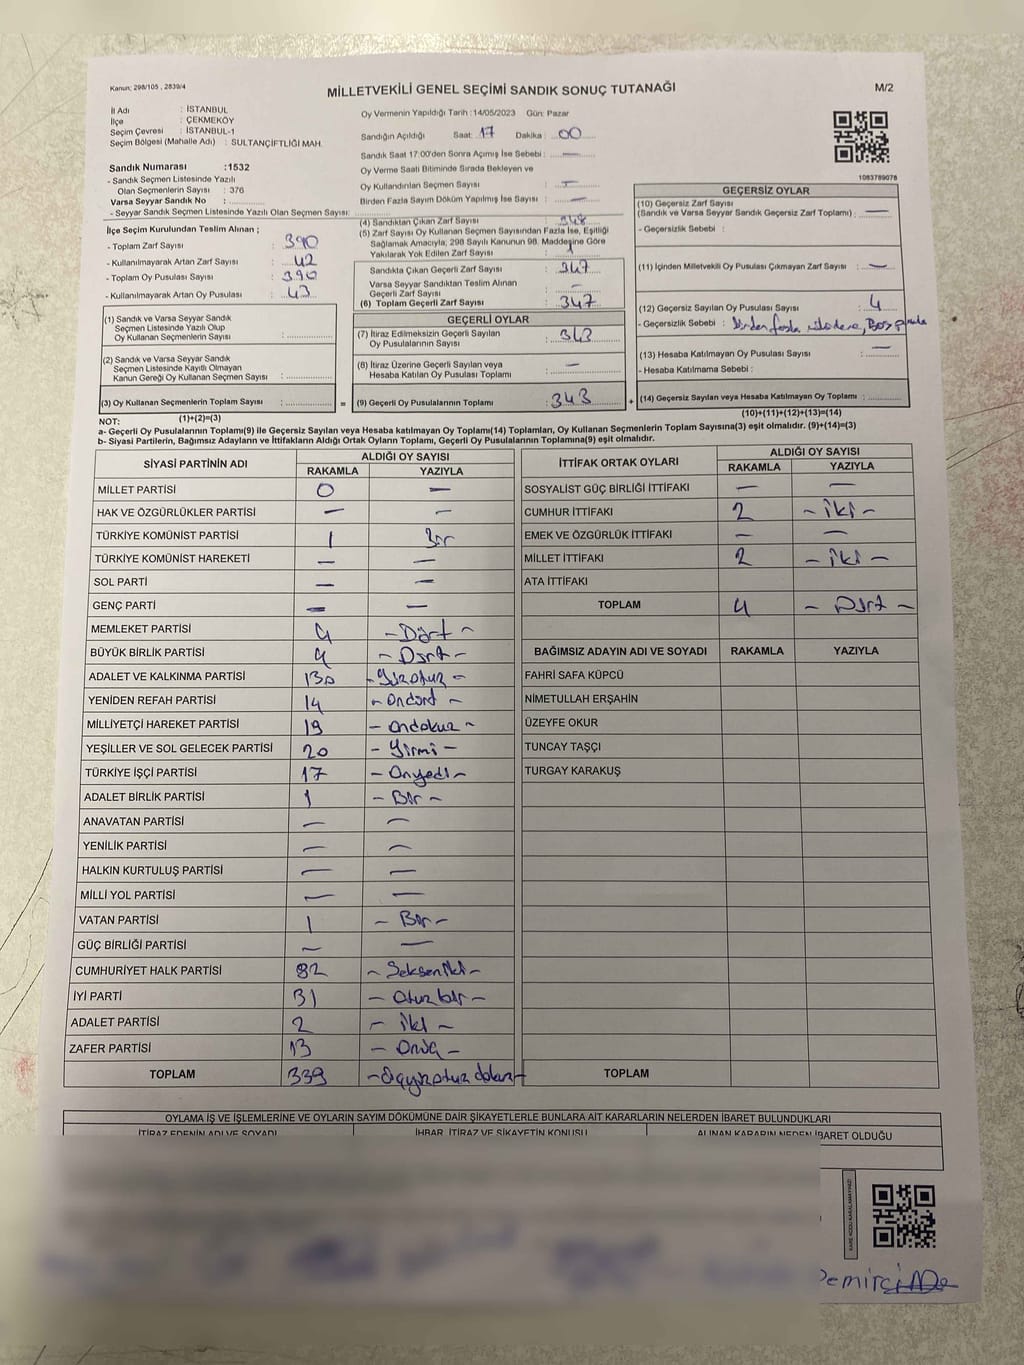 Kanun: 298/105 , 2839/4
MİLLETVEKİLİ GENEL SEÇİMİ SANDIK SONUÇ TUTANAĞI
M/2
İl Adı : İSTANBUL
İlçe : ÇEKMEKÖY
Seçim Çevresi : İSTANBUL-1
Seçim Bölgesi (Mahalle Adı) : SULTANÇİFTLİĞİ MAH.
Sandık Numarası :1532
- Sandık Seçmen Listesinde Yazılı
Olan Seçmenlerin Sayısı : 376
Varsa Seyyar Sandık No :
- Seyyar Sandık Seçmen Listesinde Yazılı Olan Seçmen Sayısı:
İlçe Seçim Kurulundan Teslim Alınan ;
- Toplam Zarf Sayısı : 390
- Kullanılmayarak Artan Zarf Sayısı : 42
- Toplam Oy Pusulası Sayısı : 390
- Kullanılmayarak Artan Oy Pusulası : 43
(1) Sandık ve Varsa Seyyar Sandık
Seçmen Listesinde Yazılı Olup
Oy Kullanan Seçmenlerin Sayısı :
(2) Sandık ve Varsa Seyyar Sandık
Seçmen Listesinde Kayıtlı Olmayan
Kanun Gereği Oy Kullanan Seçmen Sayısı :
(3) Oy Kullanan Seçmenlerin Toplam Sayısı :
Oy Vermenin Yapıldığı Tarih : 14/05/2023 Gün: Pazar
Sandığın Açıldığı Saat: 17 Dakika : 00
Sandık Saat 17:00'den Sonra Açımış İse Sebebi : —
Oy Verme Saati Bitiminde Sırada Bekleyen ve
Oy Kullandırılan Seçmen Sayısı : —
Birden Fazla Sayım Döküm Yapılmış İse Sayısı : —
(4) Sandıktan Çıkan Zarf Sayısı : 348
(5) Zarf Sayısı Oy Kullanan Seçmen Sayısından Fazla İse, Eşitliği
Sağlamak Amacıyla; 298 Sayılı Kanunun 98. Maddesine Göre
Yakılarak Yok Edilen Zarf Sayısı : 1
Sandıkta Çıkan Geçerli Zarf Sayısı : 347
Varsa Seyyar Sandıktan Teslim Alınan
Geçerli Zarf Sayısı : —
(6) Toplam Geçerli Zarf Sayısı : 347
GEÇERLİ OYLAR
(7) İtiraz Edilmeksizin Geçerli Sayılan
Oy Pusulalarının Sayısı : 343
(8) İtiraz Üzerine Geçerli Sayılan veya
Hesaba Katılan Oy Pusulası Toplamı : —
= (9) Geçerli Oy Pusulalarının Toplamı : 343 +
1083789078
GEÇERSİZ OYLAR
(10) Geçersiz Zarf Sayısı
(Sandık ve Varsa Seyyar Sandık Geçersiz Zarf Toplamı) : —
- Geçersizlik Sebebi :
(11) İçinden Milletvekili Oy Pusulası Çıkmayan Zarf Sayısı : —
(12) Geçersiz Sayılan Oy Pusulası Sayısı : 4
- Geçersizlik Sebebi : Birden fazla Boş
(13) Hesaba Katılmayan Oy Pusulası Sayısı : —
- Hesaba Katılmama Sebebi :
(14) Geçersiz Sayılan veya Hesaba Katılmayan Oy Toplamı :
NOT: (1)+(2)=(3)
(10)+(11)+(12)+(13)=(14)
a- Geçerli Oy Pusulalarının Toplamı(9) ile Geçersiz Sayılan veya Hesaba Katılmayan Oy Toplamı(14) Toplamları, Oy Kullanan Seçmenlerin Toplam Sayısına(3) eşit olmalıdır. (9)+(14)=(3)
b- Siyasi Partilerin, Bağımsız Adayların ve İttifakların Aldığı Ortak Oyların Toplamı, Geçerli Oy Pusulalarının Toplamına(9) eşit olmalıdır.
SİYASİ PARTİNİN ADI ALDIĞI OY SAYISI
RAKAMLA YAZIYLA
MİLLET PARTİSİ 0 —
HAK VE ÖZGÜRLÜKLER PARTİSİ — —
TÜRKİYE KOMÜNİST PARTİSİ 1 Bir
TÜRKİYE KOMÜNİST HAREKETİ — —
SOL PARTİ — —
GENÇ PARTİ — —
MEMLEKET PARTİSİ 4 -Dört-
BÜYÜK BİRLİK PARTİSİ 4 -Dört-
ADALET VE KALKINMA PARTİSİ 130 -Yüzotuz-
YENİDEN REFAH PARTİSİ 14 -ondört-
MİLLİYETÇİ HAREKET PARTİSİ 19 -ondokuz-
YEŞİLLER VE SOL GELECEK PARTİSİ 20 -Yirmi-
TÜRKİYE İŞÇİ PARTİSİ 17 -Onyedi-
ADALET BİRLİK PARTİSİ 1 -Bir-
ANAVATAN PARTİSİ — —
YENİLİK PARTİSİ — —
HALKIN KURTULUŞ PARTİSİ — —
MİLLİ YOL PARTİSİ — —
VATAN PARTİSİ 1 -Bir-
GÜÇ BİRLİĞİ PARTİSİ — —
CUMHURİYET HALK PARTİSİ 82 -Seksen iki-
İYİ PARTİ 31 -Otuz bir-
ADALET PARTİSİ 2 -iki-
ZAFER PARTİSİ 13 -Onüç-
TOPLAM 339 -Üçyüzotuz dokuz-
İTTİFAK ORTAK OYLARI ALDIĞI OY SAYISI
RAKAMLA YAZIYLA
SOSYALİST GÜÇ BİRLİĞİ İTTİFAKI — —
CUMHUR İTTİFAKI 2 -iki-
EMEK VE ÖZGÜRLÜK İTTİFAKI — —
MİLLET İTTİFAKI 2 -iki-
ATA İTTİFAKI
TOPLAM 4 -Dört-
BAĞIMSIZ ADAYIN ADI VE SOYADI RAKAMLA YAZIYLA
FAHRİ SAFA KÜPCÜ
NİMETULLAH ERŞAHİN
ÜZEYFE OKUR
TUNCAY TAŞÇI
TURGAY KARAKUŞ
TOPLAM
OYLAMA İŞ VE İŞLEMLERİNE VE OYLARIN SAYIM DÖKÜMÜNE DAİR ŞİKAYETLERLE BUNLARA AİT KARARLARIN NELERDEN İBARET BULUNDUKLARI
İTİRAZ EDENİN ADI VE SOYADI İHBAR, İTİRAZ VE ŞİKAYETİN KONUSU ALINAN KARARIN NEDEN İBARET OLDUĞU
KARE KODU KARALAMAYINIZ!
Demirci